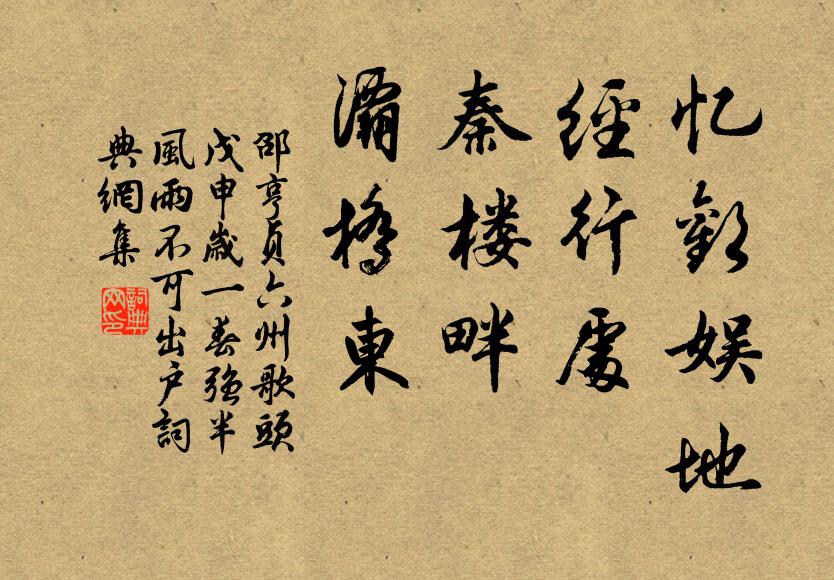 忆歡娱地
經行處
秦楼畔
灞橋東
邵亨貞六州歌頭
戊申歲一春強半
風雨不可出户詞
典網集
詞典
网印